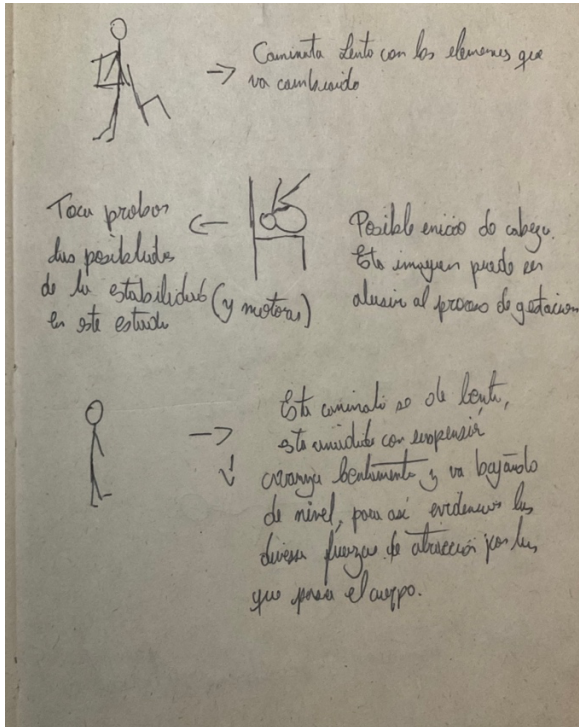 → Caminata lento con los elementos que
va cambiando
Toca probar
las posibilidades
de la estabilidad (y motoras)
en este estudio
←
Posible inicio de cabeza.
Esta imagen puede ser
alusiva al proceso de gestación
→ Esta caminata se da lenta,
este con suspensión
↓ avanza lentamente y va bajando
de nivel, para así evidenciar las
diversas fuerzas de atracción por las
que pasa el cuerpo.